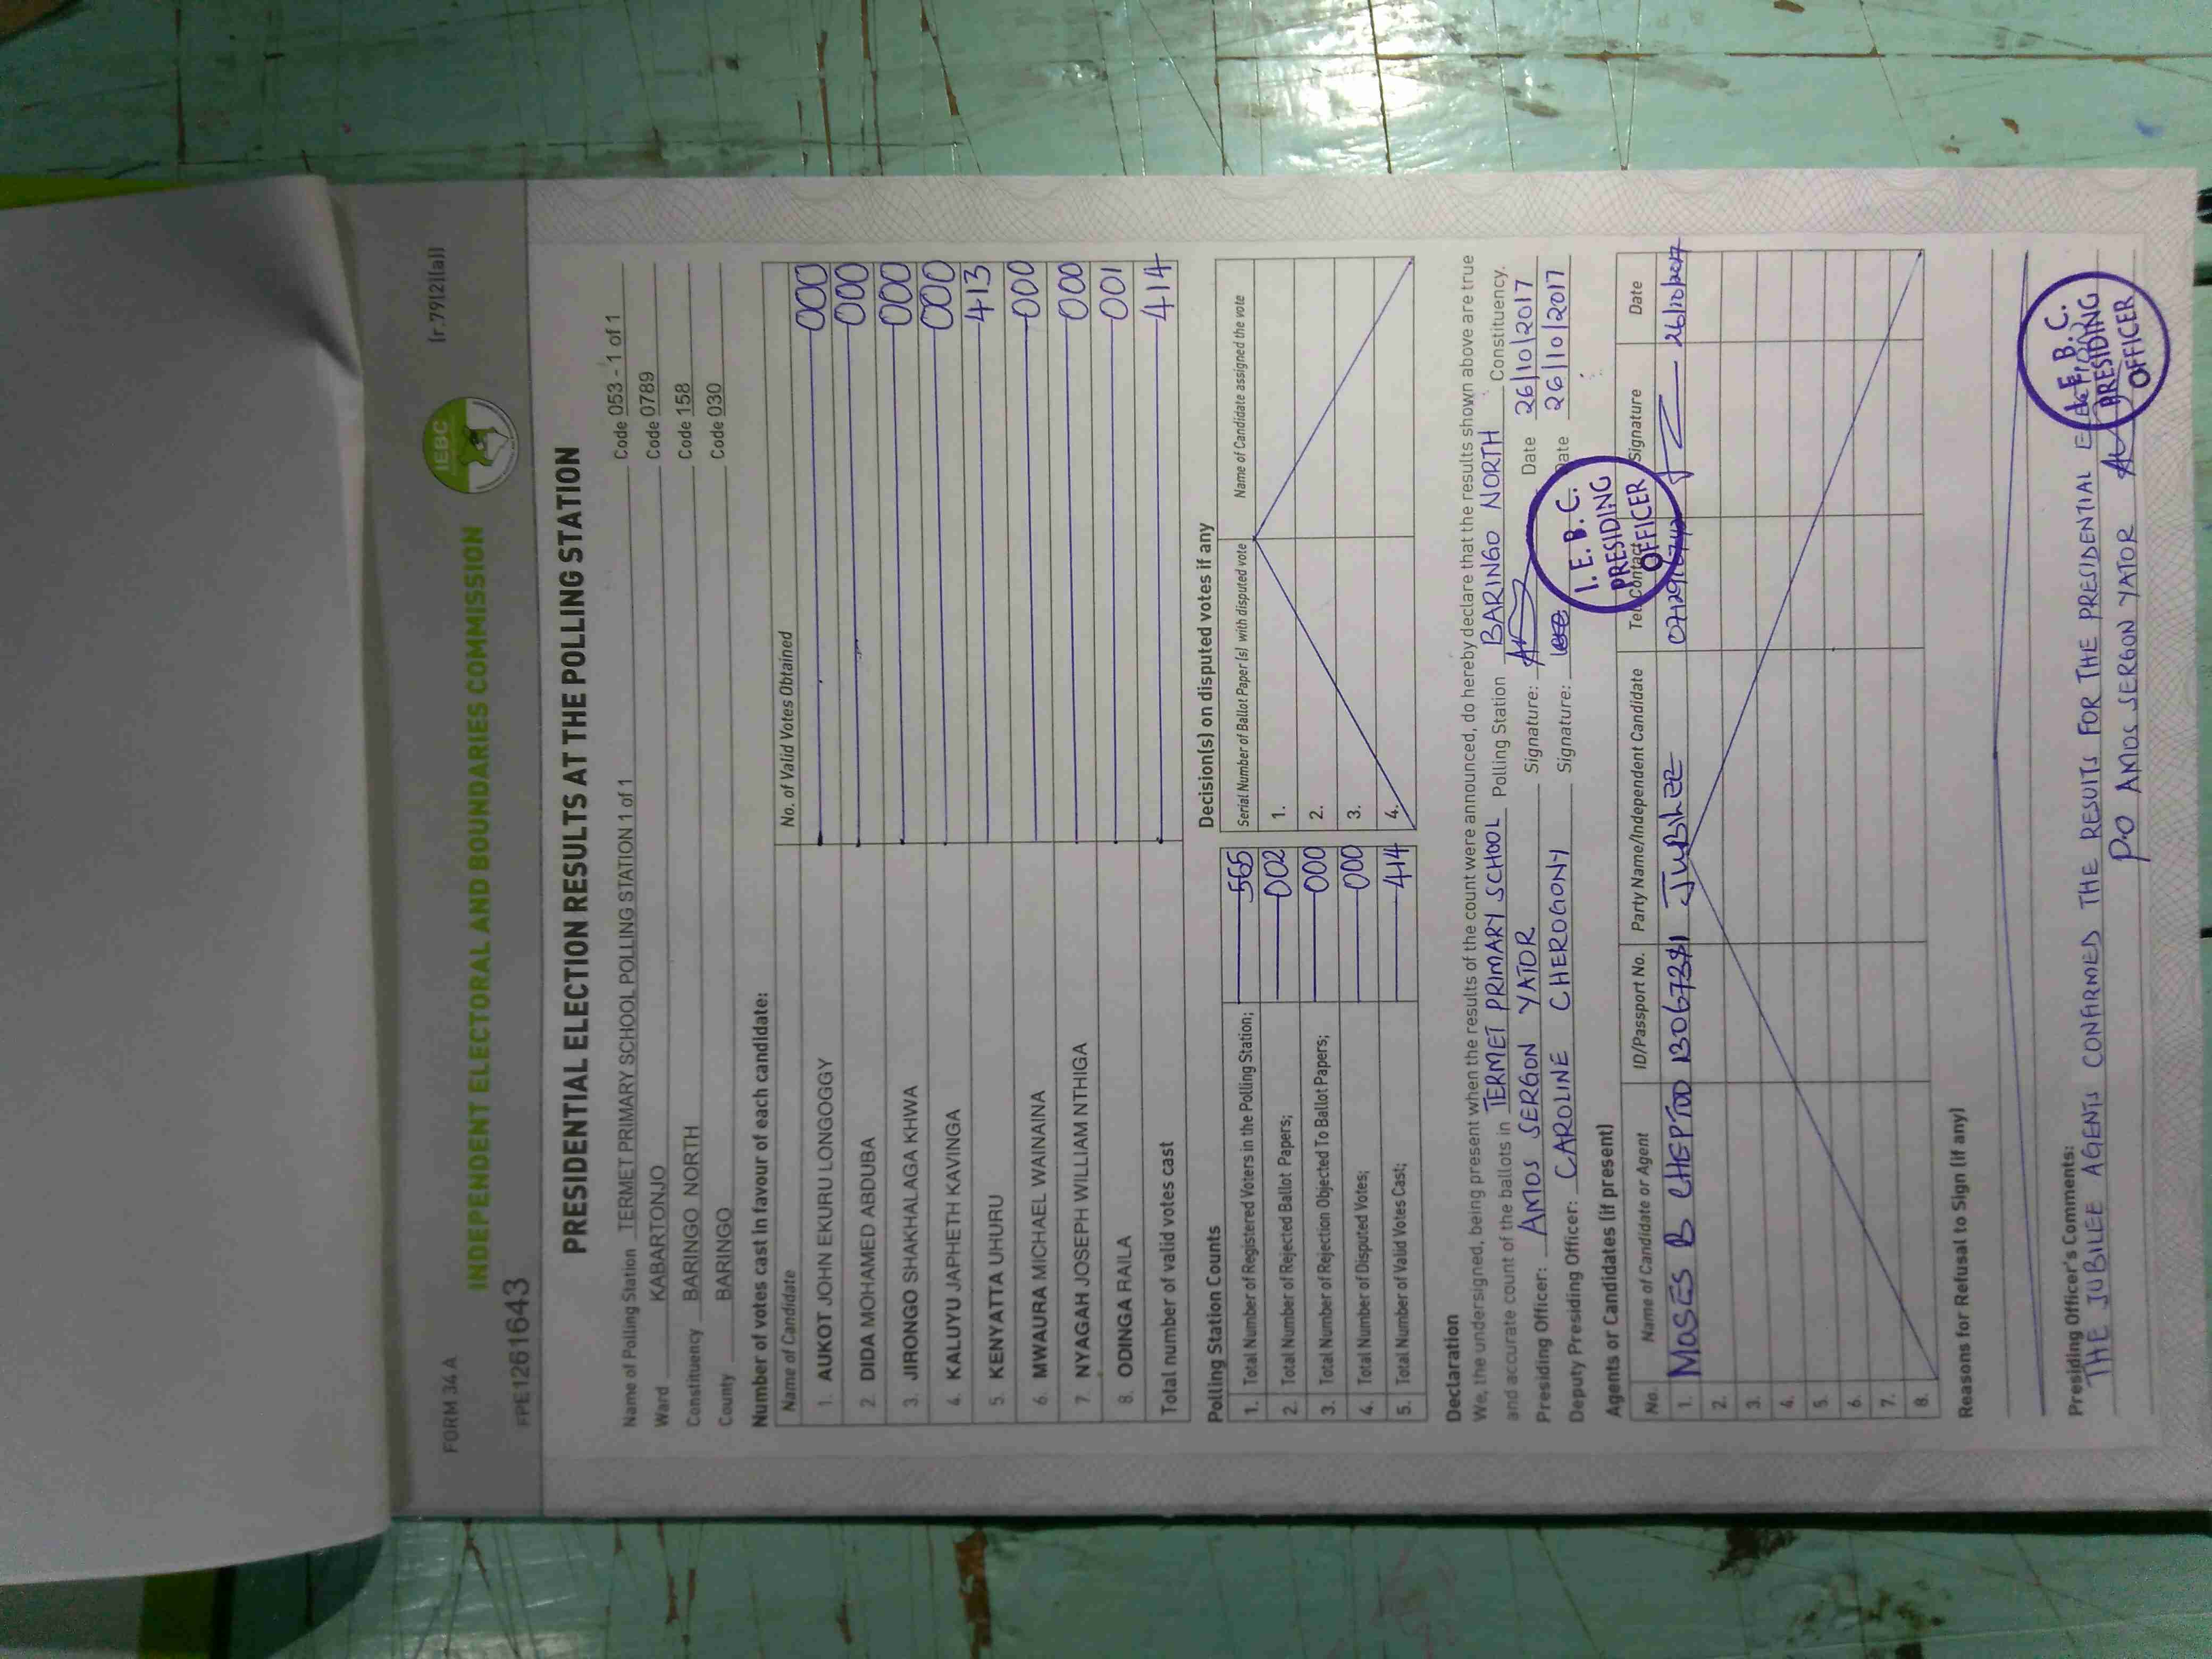 FORM 34A
(r.79(2)(a))
IEBC
INDEPENDENT ELECTORAL AND BOUNDARIES COMMISSION
FPE1261643
PRESIDENTIAL ELECTION RESULTS AT THE POLLING STATION
Name of Polling Station TERMET PRIMARY SCHOOL POLLING STATION 1 of 1 Code 053 - 1 of 1
Ward KABARTONJO Code 0789
Constituency BARINGO NORTH Code 158
County BARINGO Code 030
Number of votes cast in favour of each candidate:
Name of Candidate No. of Valid Votes Obtained
1. AUKOT JOHN EKURU LONGOGGY 000
2. DIDA MOHAMED ABDUBA 000
3. JIRONGO SHAKHALAGA KHWA 000
4. KALUYU JAPHETH KAVINGA 000
5. KENYATTA UHURU 413
6. MWAURA MICHAEL WAINAINA 000
7. NYAGAH JOSEPH WILLIAM NTHIGA 000
8. ODINGA RAILA 001
Total number of valid votes cast 414
Polling Station Counts
1. Total Number of Registered Voters in the Polling Station; 565
2. Total Number of Rejected Ballot Papers; 002
3. Total Number of Rejection Objected To Ballot Papers; 000
4. Total Number of Disputed Votes; 000
5. Total Number of Valid Votes Cast; 414
Decision(s) on disputed votes if any
Serial Number of Ballot Paper (s) with disputed vote Name of Candidate assigned the vote
1.
2.
3.
4.
Declaration
We, the undersigned, being present when the results of the count were announced, do hereby declare that the results shown above are true
and accurate count of the ballots in TERMET PRIMARY SCHOOL Polling Station BARINGO NORTH Constituency.
Presiding Officer: AMOS SERGON YATOR Signature: Date 26/10/2017
Deputy Presiding Officer: CAROLINE CHEROGONY Signature: Date 26/10/2017
I.E.B.C.
PRESIDING
OFFICER
Agents or Candidates (if present)
No. Name of Candidate or Agent ID/Passport No. Party Name/Independent Candidate Tel. Contact Signature Date
1. MOSES B CHEPTOO JUBILEE 26/10/2017
2.
3.
4.
5.
6.
7.
8.
Reasons for Refusal to Sign (if any)
Presiding Officer's Comments:
THE JUBILEE AGENTS CONFIRMED THE RESULTS FOR THE PRESIDENTIAL ELECTIONS
P.O AMOS SERGON YATOR
I.E.B.C.
PRESIDING
OFFICER